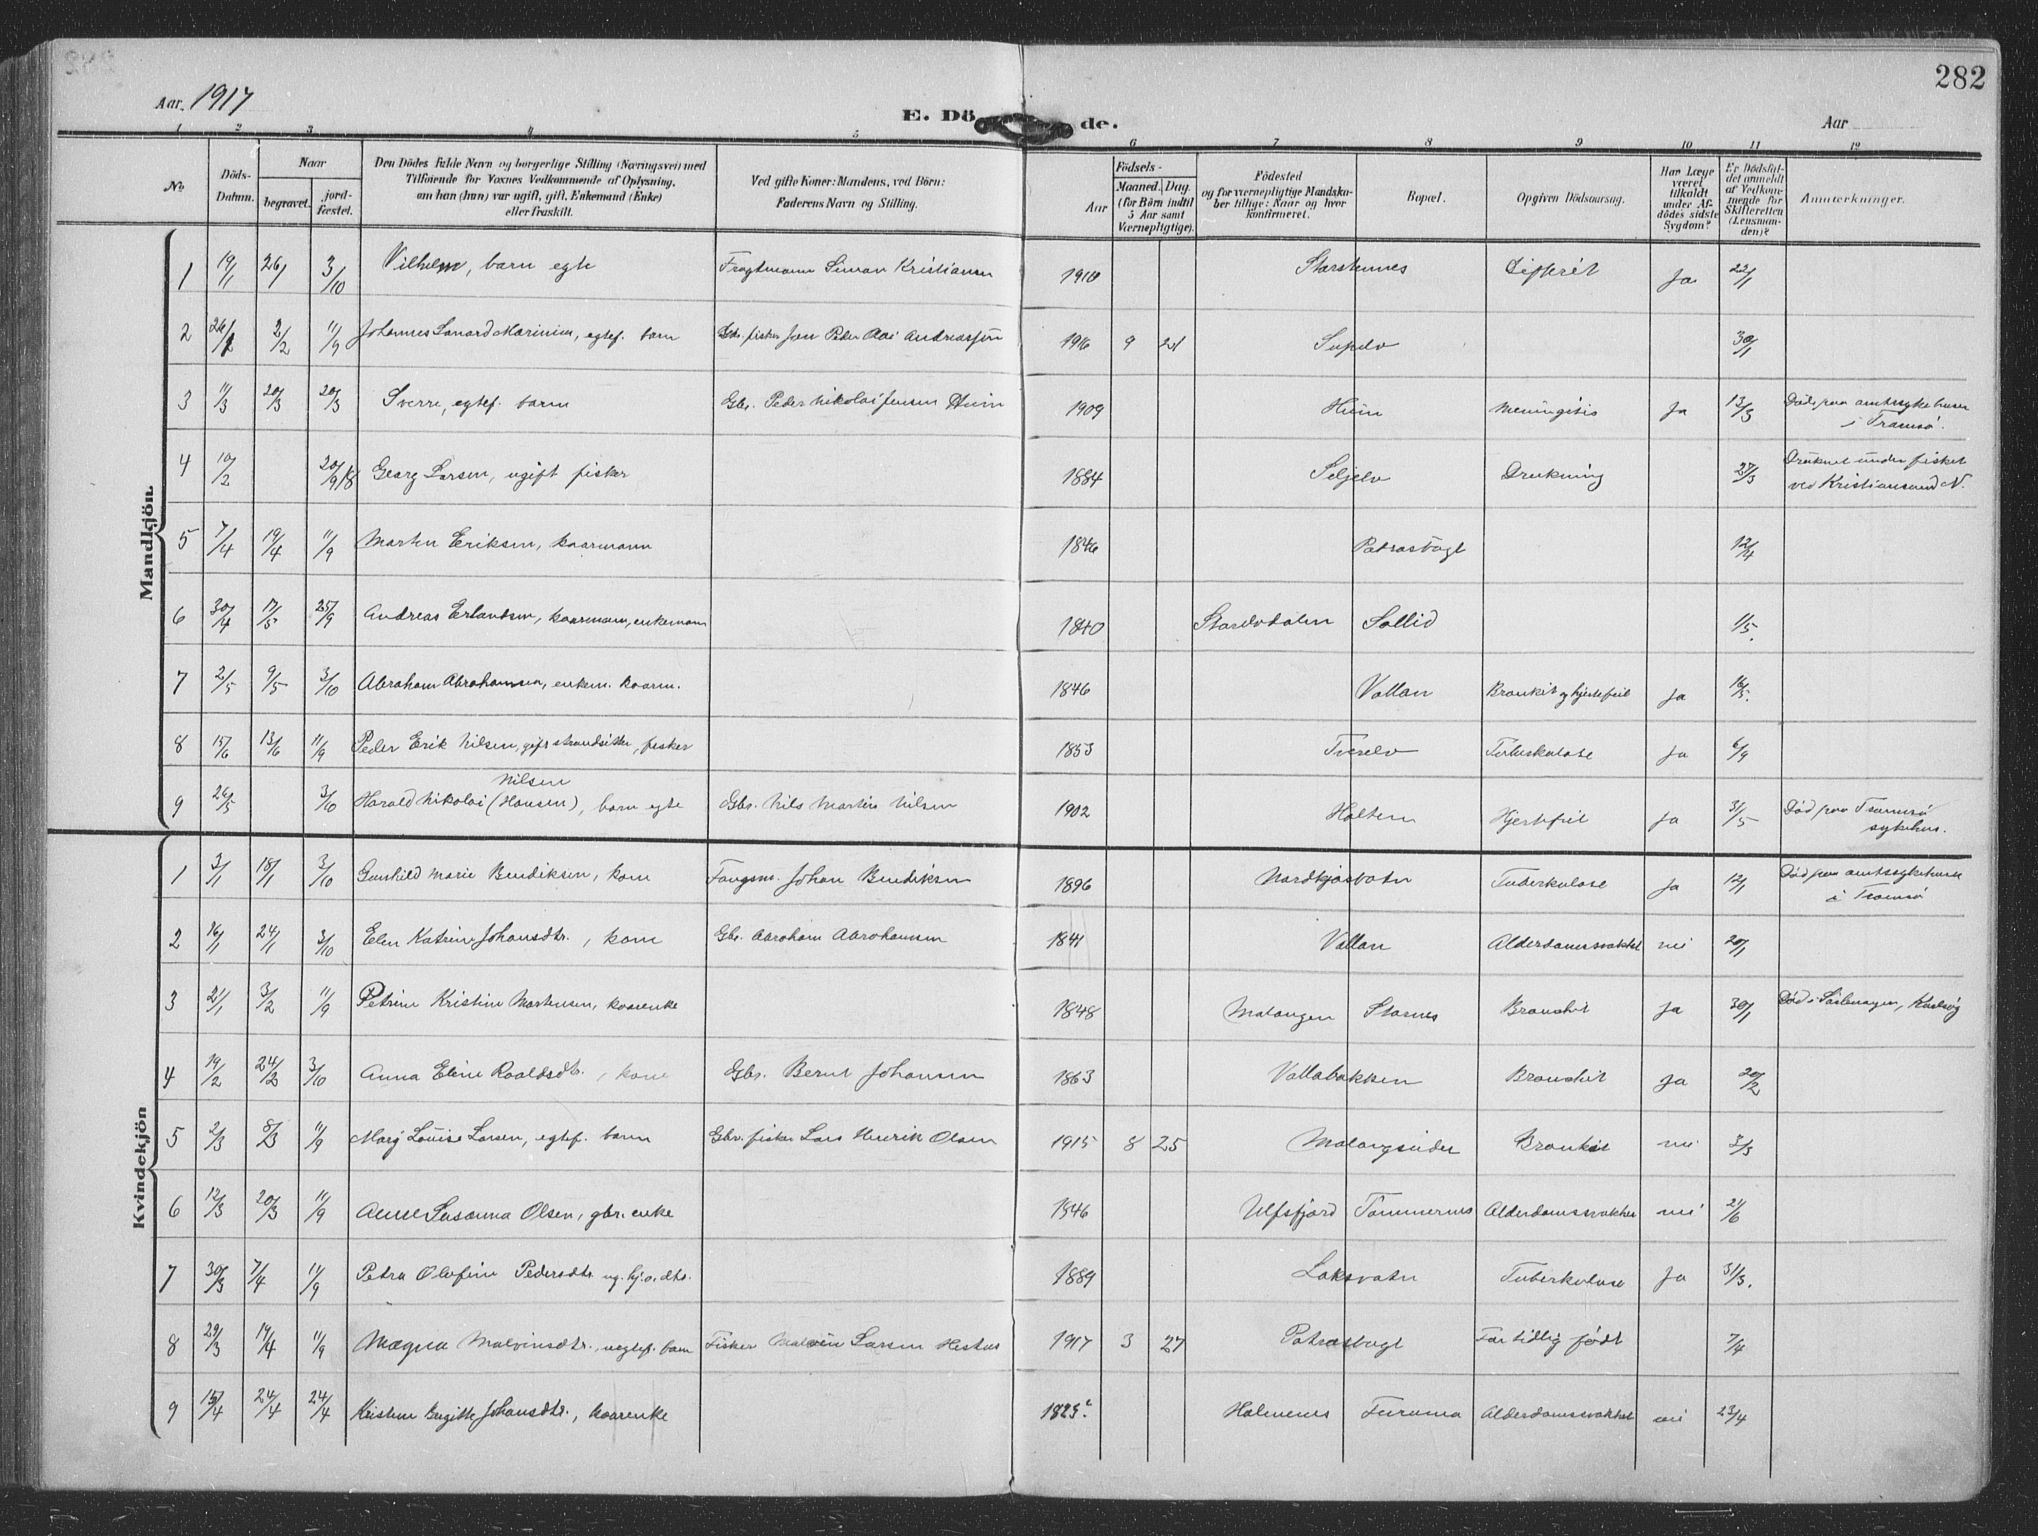 282
Aar. 1917
E. Döde.
Aar
1 2 3 4 5 6 7 8 9 10 11 12
No
Döds-Datum.
Naar
begravet.
jord-fæstet.
Den Dödes fulde Navn og borgerlige Stilling (Næringsvei) med
Tilföiende for Voxnes Vedkommende af Oplysning,
om han (hun) var ugift, gift, Enkemand (Enke)
eller fraskilt.
Ved gifte Koner: Mandens, ved Börn:
Faderens Navn og Stilling.
Aar
Födsels-
Maaned. Dag.
(for Börn indtil
5 Aar samt
Værnepligtige).
Födested
og for værnepligtige Mandska-
ber tillige: Naar og hvor
konfirmeret.
Bopæl.
Opgiven Dödsaarsag.
Har Læge
været
tilkaldt
under Af-
dödes sidste
Sygdom?
Er Dödsfal-
det anmeldt
af Vedkom-
mende for
Skifteretten
(Lensman-
den)?
Anmærkninger.
Mandkjön.
1 19/1 26/1 3/10 Vilhelm, barn egte Fragtmann Simon Kristiansen 1910 Storstennes Difterit Ja 22/1
2 26/1 2/2 11/9 Johannes Lenard Marinius, egtef. barn Gbr. fisker Jon Peder Olai Andreassen 1916 9 21 30/1
3 11/3 20/3 20/3 Sverre, egtef. barn Gbr. Peder Nikolai Jensen 1909 Meningitis Ja 13/3 Död paa amtssykehuset
i Tromsö.
4 10/2 20/9 18 Georg Larsen, ugift fisker 1884 Seljelv Drukning 27/3 Druknet under fisket
ved Kristiansund N.
5 7/4 19/4 11/9 Martin Eriksen, kaarmann 1846 12/4
6 30/4 17/5 25/9 Andreas Erlandsen, kaarmann, enkemann 1840 Sollid 1/5.
7 2/5 9/5 3/10 Abraham Abrahamsen, enkem. kaarm. 1846 Vollan Bronkit og hjertefeil Ja 16/5.
8 15/6 13/6 11/9 Peder Erik Nilsen, gift strandsitter, fisker 1853 Tverelv Tuberkulose Ja 6/9
Nilsen
9 26/5 3/10 Harald Nikolai (Hansen), barn egte Gbr. Nils Martin Nilsen 1902 Holten Hjertefeil Ja 31/5 Död paa Tromsö
sykehus.
Kvindekjön
1 3/1 18/1 3/10 Gunhild Marie Bendiksen, kone Fangsm. Johan Bendiksen 1896 Nordkjosbotn Tuberkulose Ja 12/1 Död paa amtssykehuset
i Tromsö
2 16/1 24/1 3/10 Elen Katrine Johansdtr., kone Gbr. Abraham Abrahamsen 1841 Vollan Alderdomssvakhet nei 20/1
3 21/1 3/2 11/9 Petrine Kristine Martinsen, kaarenke 1848 Malangen Stornes Bronkit Ja 30/1 Död i Karlsöy
4 19/2 24/2 3/10 Anna Eline Roaldsdtr., kone Gbr. Bernt Johansen 1863 Vollabakken Bronkit Ja 20/2
5 2/3 8/3 11/9 Mary Louise Larsen, egtef. barn Gbr. fisker Lars Henrik Olsen 1915 8 25 Malangseidet Bronkit nei 3/3
6 12/3 20/3 11/9 Anne Susanna Olsen, gbr. enke 1846 Ulfsfjord Tömmernes Alderdomssvakhet nei 21/6
7 30/3 7/4 11/9 Petra Olefine Pedersdtr. ug. gbr. dtr. 1889 Laksvatn Tuberkulose Ja 31/3.
8 29/3 19/4 11/9 Magna Malvinsdtr., uegtef. barn Fisker Malvin Larsen Hestnes 1917 3 27 For tidlig födt 7/4
9 15/4 24/4 24/4 Kristine Birgitte Johansdtr., kaarenke 1825. Holmenes Furumo Alderdomssvakhet nei 23/4